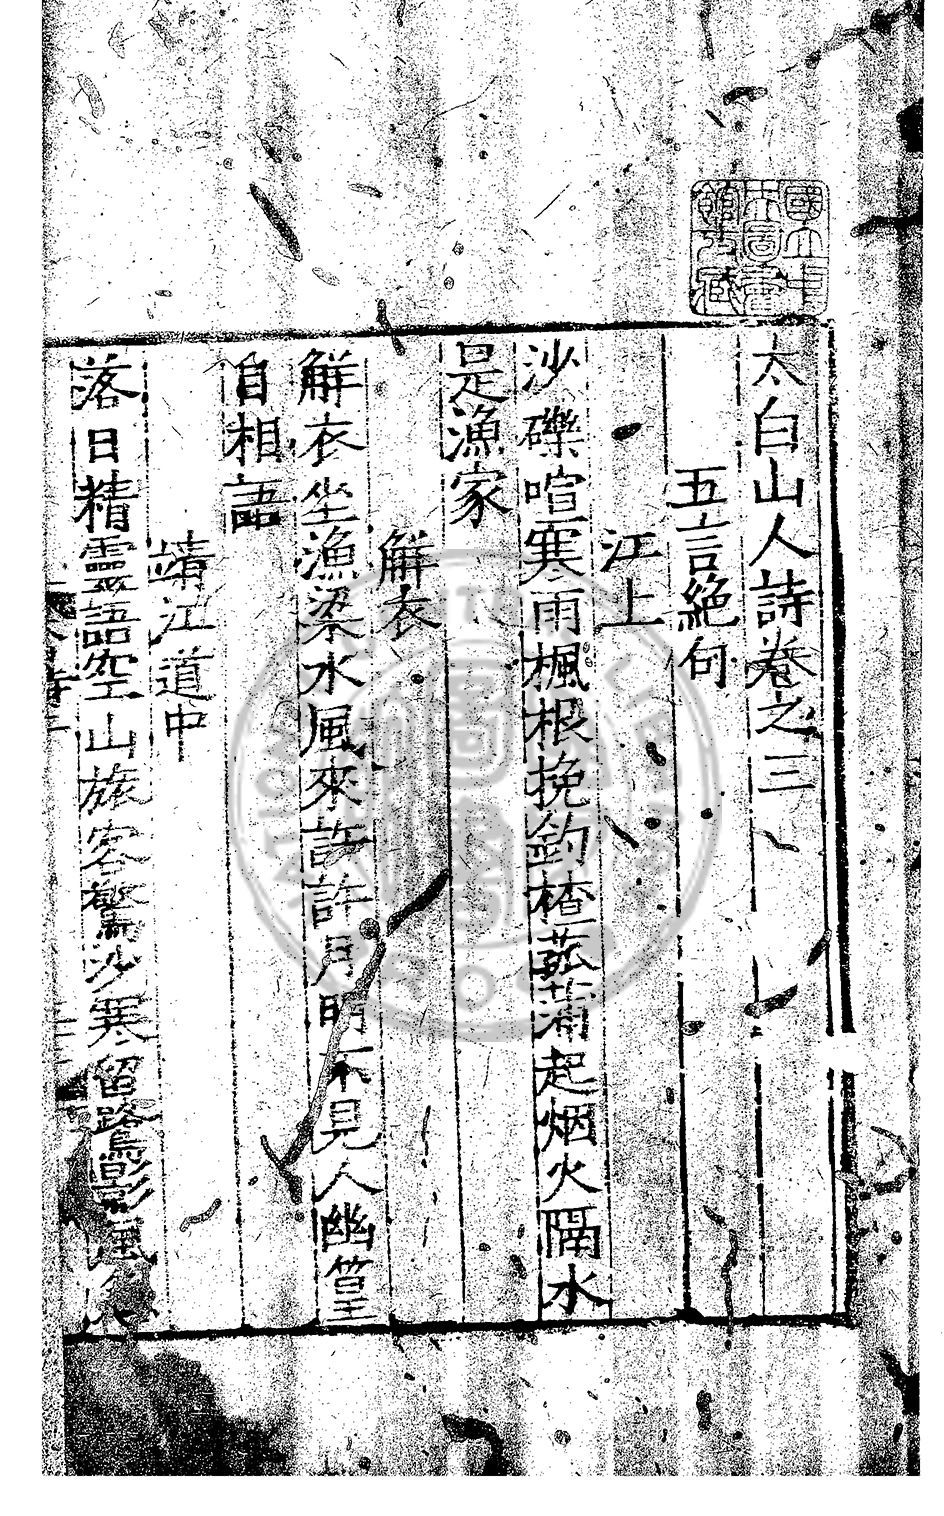 國立中央圖書館收藏
太白山人詩卷之三
五言絶句
江上
沙礫喧寒雨楓根挽釣楂菰蒲起烟火隔水
是漁家
解衣
解衣坐漁梁水風來許許月明不見人幽篁
自相語
靖江道中
落日精靈語空山旅客驚沙寒留鷺影風